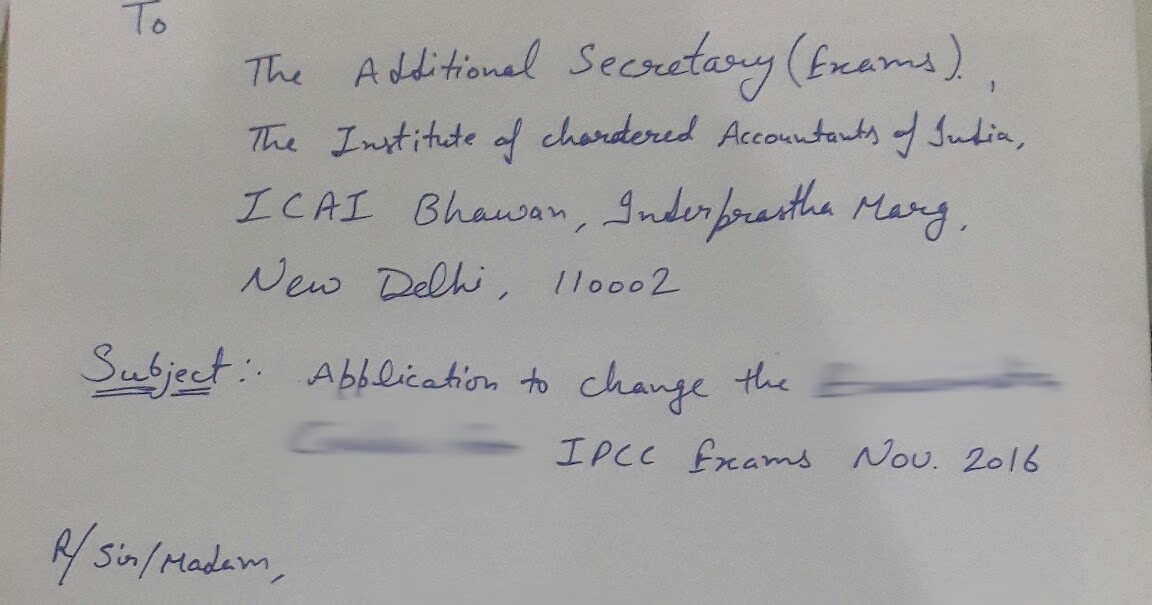 To
The Additional Secretary (Exams).,
The Institute of chardered Accountants of India,
ICAI Bhawan, Inderprastha Marg,
New Delhi, 110002
Subject:. Application to change the
IPCC Exams Nov. 2016
R/Sir/Madam,